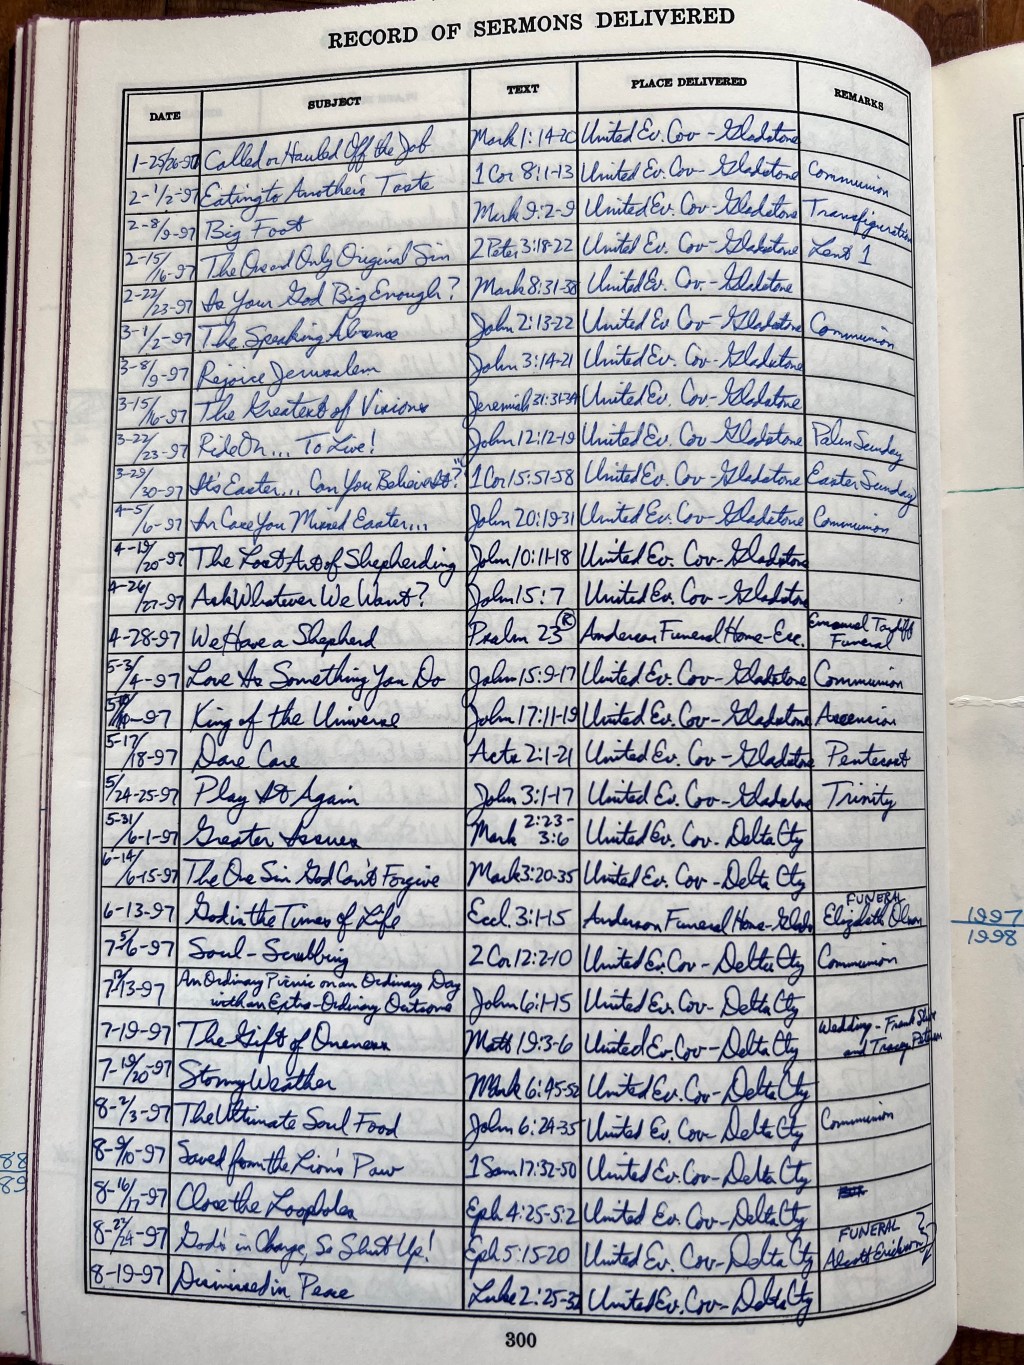 RECORD OF SERMONS DELIVERED
DATE SUBJECT TEXT PLACE DELIVERED REMARKS
1-25/26-97 Called or Hauled Off the Job Mark 1:14-20 United Ev. Cov - Gladstone
2-1/2-97 Eating to Another's Taste 1 Cor 8:1-13 United Ev. Cov - Gladstone Communion
2-8/9-97 Big Foot Mark 9:2-9 United Ev. Cov - Gladstone Transfiguration
2-15/16-97 The One and Only Original Sin 2 Peter 3:18-22 United Ev. Cov - Gladstone Lent 1
2-22/23-97 Is Your God Big Enough? Mark 8:31-38 United Ev. Cov - Gladstone
3-1/2-97 The Speaking Absence John 2:13-22 United Ev. Cov - Gladstone Communion
3-8/9-97 Rejoice Jerusalem John 3:14-21 United Ev. Cov - Gladstone
3-15/16-97 The Greatest of Visions Jeremiah 31:31-34 United Ev. Cov - Gladstone
3-22/23-97 Ride On... To Live! John 12:12-19 United Ev. Cov Gladstone Palm Sunday
3-29/30-97 It's Easter... Can You Believe It? 1 Cor 15:51-58 United Ev. Cov - Gladstone Easter Sunday
4-5/6-97 In Case You Missed Easter... John 20:19-31 United Ev. Cov - Gladstone Communion
4-19/20-97 The Lost Art of Shepherding John 10:11-18 United Ev. Cov - Gladstone
4-26/27-97 Ask Whatever We Want? John 15:7 United Ev. Cov - Gladstone
4-28-97 We Have a Shepherd Psalm 23 ® Anderson Funeral Home - Esc. Emanuel Tardiff
Funeral
5-3/4-97 Love Is Something You Do John 15:9-17 United Ev. Cov - Gladstone Communion
-97 King of the Universe John 17:11-19 United Ev. Cov - Gladstone Ascension
5-17/18-97 Dare Care Acts 2:1-21 United Ev. Cov - Gladstone Pentecost
5/24-25-97 Play It Again John 3:1-17 United Ev. Cov - Gladstone Trinity
5-31/6-1-97 Greater Issues Mark 2:23-3:6 United Ev. Cov - Delta Cty
6-14/6-15-97 The One Sin God Can't Forgive Mark 3:20-35 United Ev. Cov - Delta Cty
6-13-97 God in the Times of Life Eccl. 3:1-15 Anderson Funeral Home - Glads FUNERAL
Elizabeth Olson
7-5/6-97 Soul-Scrubbing 2 Cor 12:2-10 United Ev. Cov - Delta Cty Communion
7-12/13-97 An Ordinary Picnic on an Ordinary Day
with an Extra-Ordinary Outcome John 6:1-15 United Ev. Cov - Delta Cty
7-19-97 The Gift of Oneness Matt 19:3-6 United Ev. Cov - Delta Cty Wedding - Frank
and Tracey
7-19/20-97 Stormy Weather Mark 6:45-52 United Ev. Cov - Delta Cty
8-2/3-97 The Ultimate Soul Food John 6:24-35 United Ev. Cov - Delta Cty Communion
8-9/10-97 Saved from the Lion's Paw 1 Sam 17:32-50 United Ev. Cov - Delta Cty
8-16/17-97 Close the Loopholes Eph 4:25-5:2 United Ev. Cov - Delta Cty
8-23/24-97 God's in Charge, So Shut Up! Eph 5:15-20 United Ev. Cov - Delta Cty FUNERAL
Alcott Erickson
8-19-97 Dismissed in Peace Luke 2:25-32 United Ev. Cov - Delta Cty
300
1997
1998
88
89